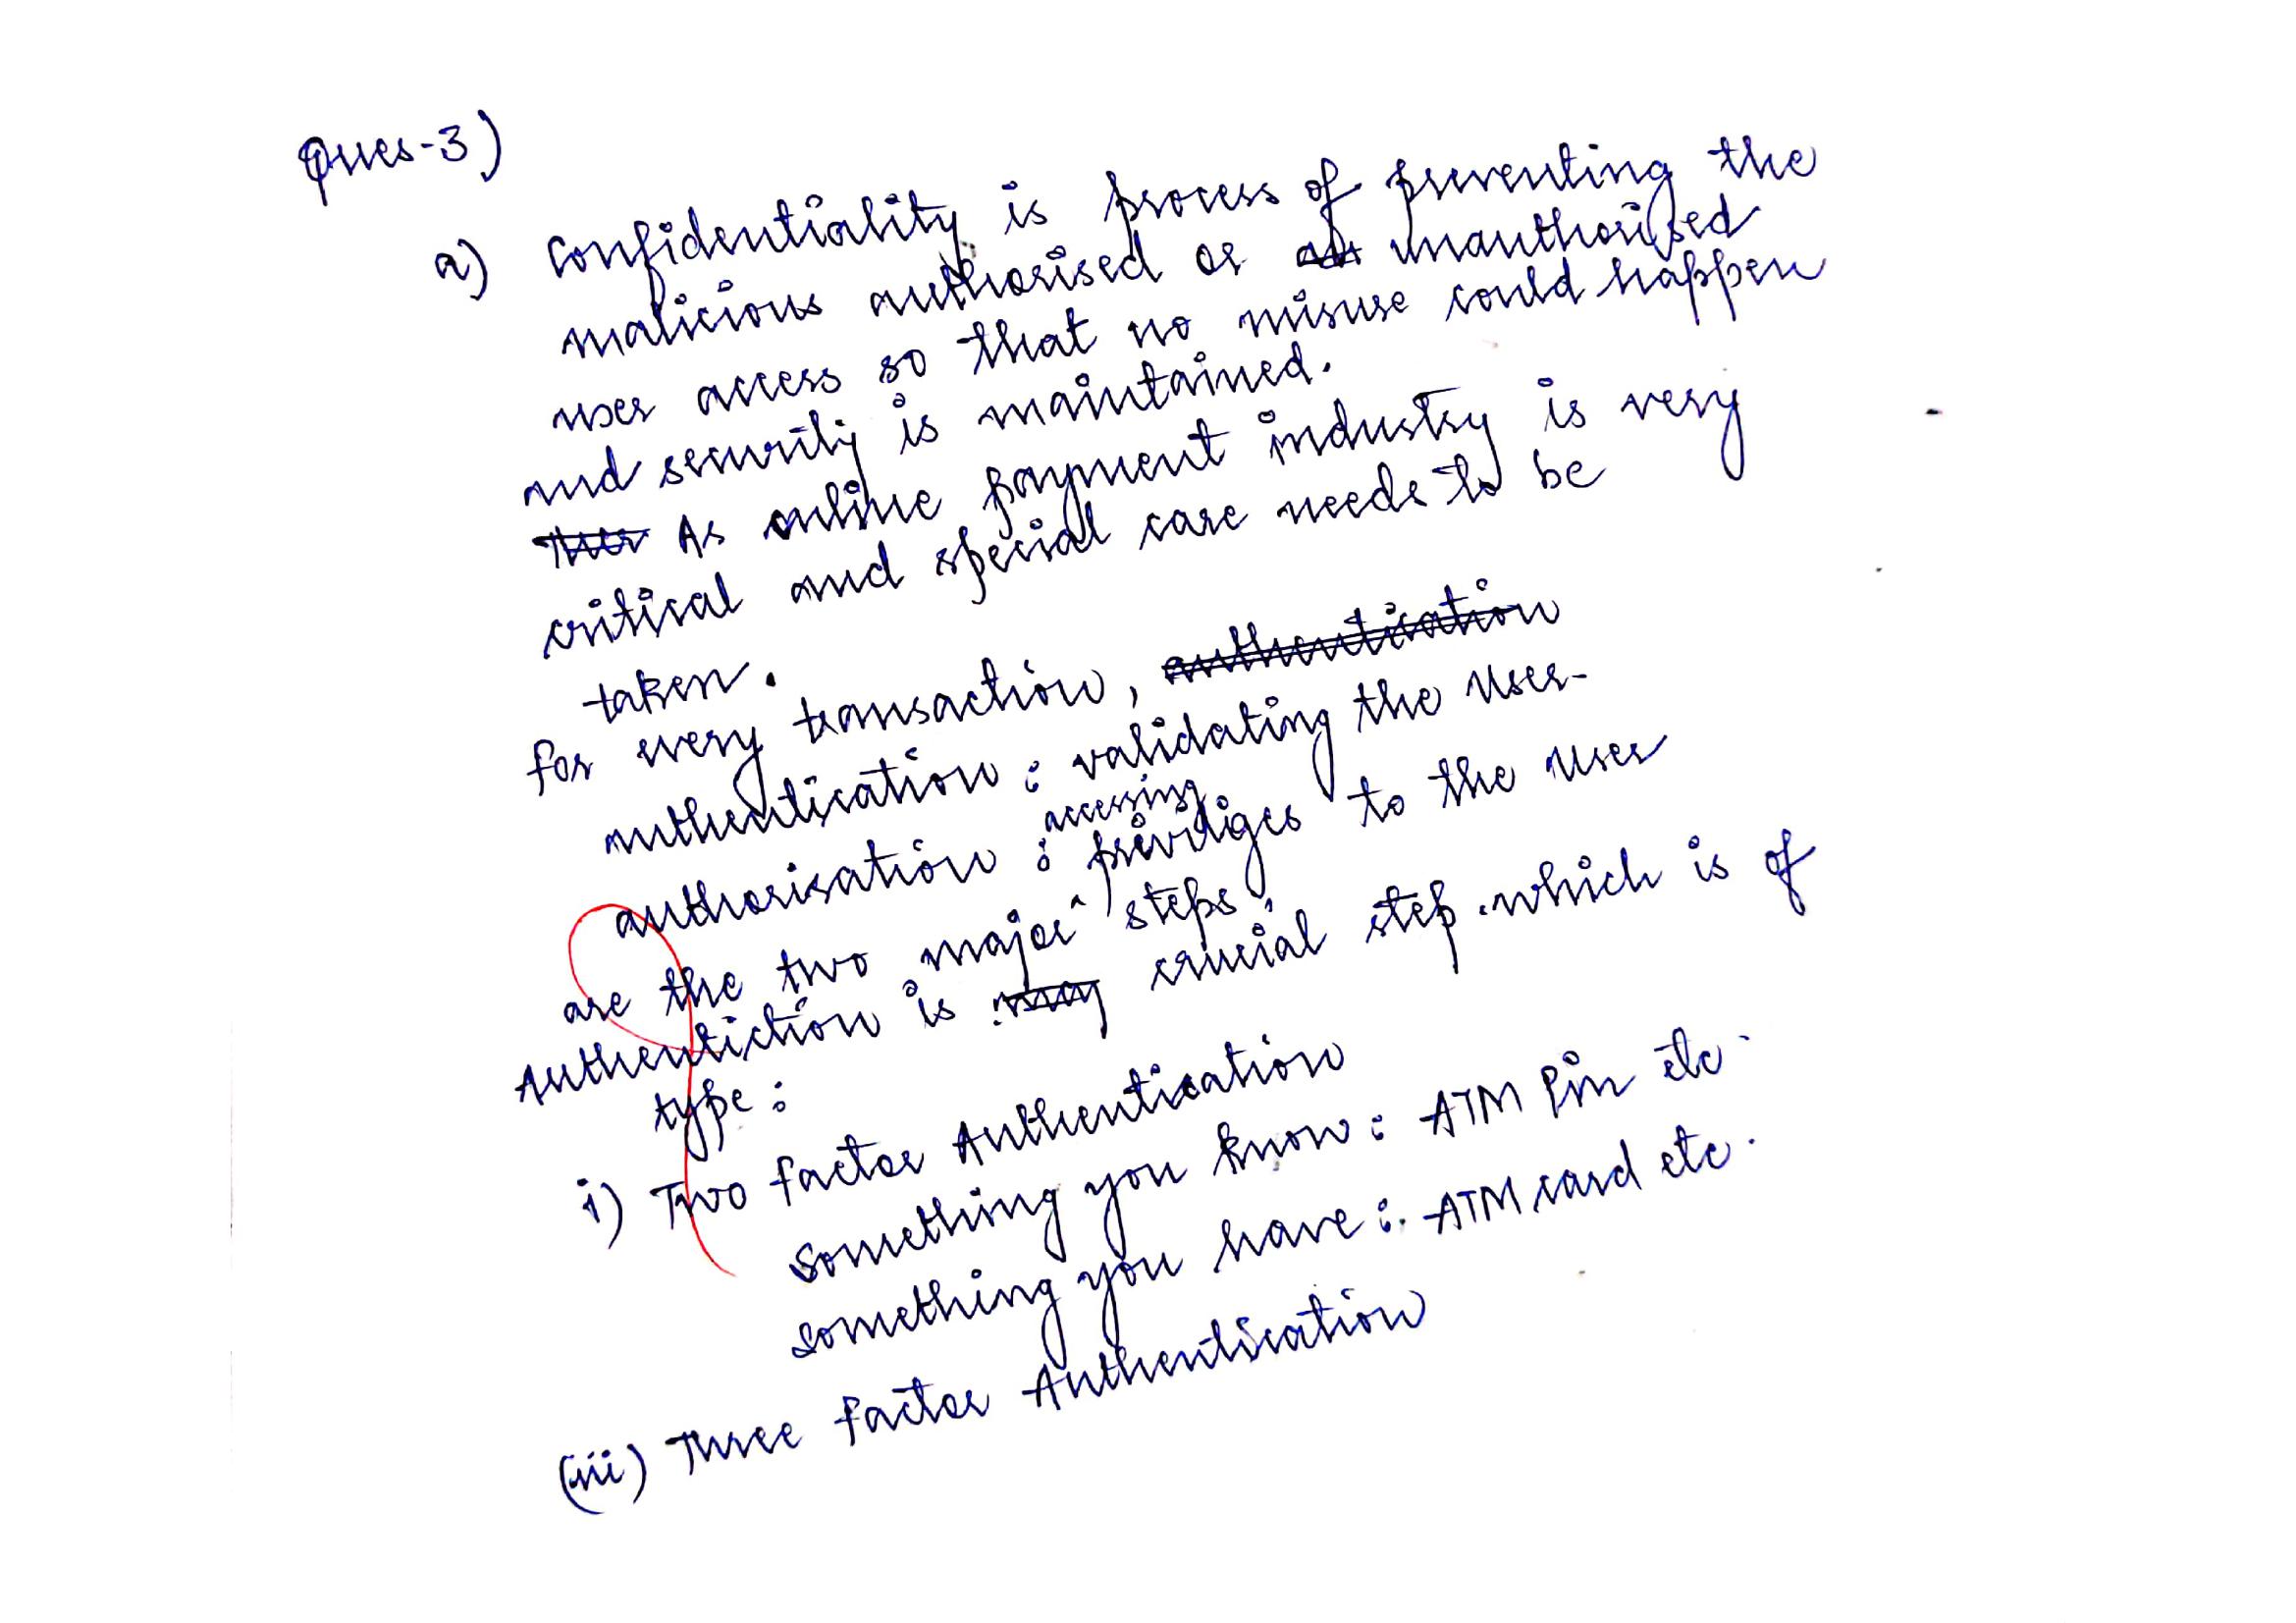 Ques-3)
a) confidentiality is process of preventing the
malicious authorised or unauthorised
user access so that no misuse could happen
and security is maintained.
As online payment industry is very
critical and special care needs to be
taken.
for every transaction, authentication
authentication : validating the user-
authorisation : accessing priviliges to the user
are the two major steps.
Authentiction is crucial step which is of
type:
i) Two factor Authentication
something you know : ATM Pin etc.
something you have : ATM card etc.
(iii) Three factor Authentication